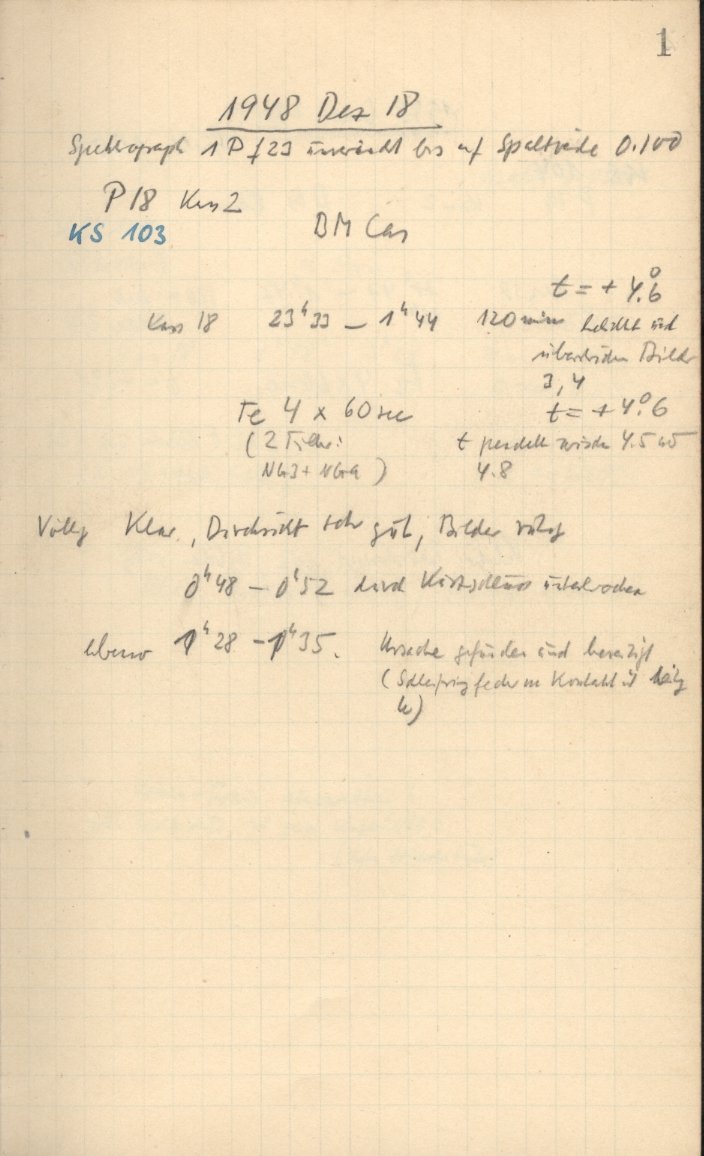 1
1948 Dez 18
Spektrograph 1 P f 23 unverändert bis auf Spaltweite 0.100
P 18 Kass 2
KS 103 BM Cas
t = + 4.°6
Kass 18 23ʰ33 – 1ʰ44 120 min belichtet und
Bilder
3, 4
Fe 4 x 60 sec t = + 4.°6
(2 Filter: t pendelt zwischen 4.5 und
NG3 + NG9) 4.8
Völlig Klar, Durchsicht sehr gut, Bilder ruhig
0ʰ48 – 0ʰ52 durch Kurzschluss unterbrochen
ebenso 1ʰ28 – 1ʰ35. Ursache gefunden und beseitigt
(Schleifringfeder Kontakt